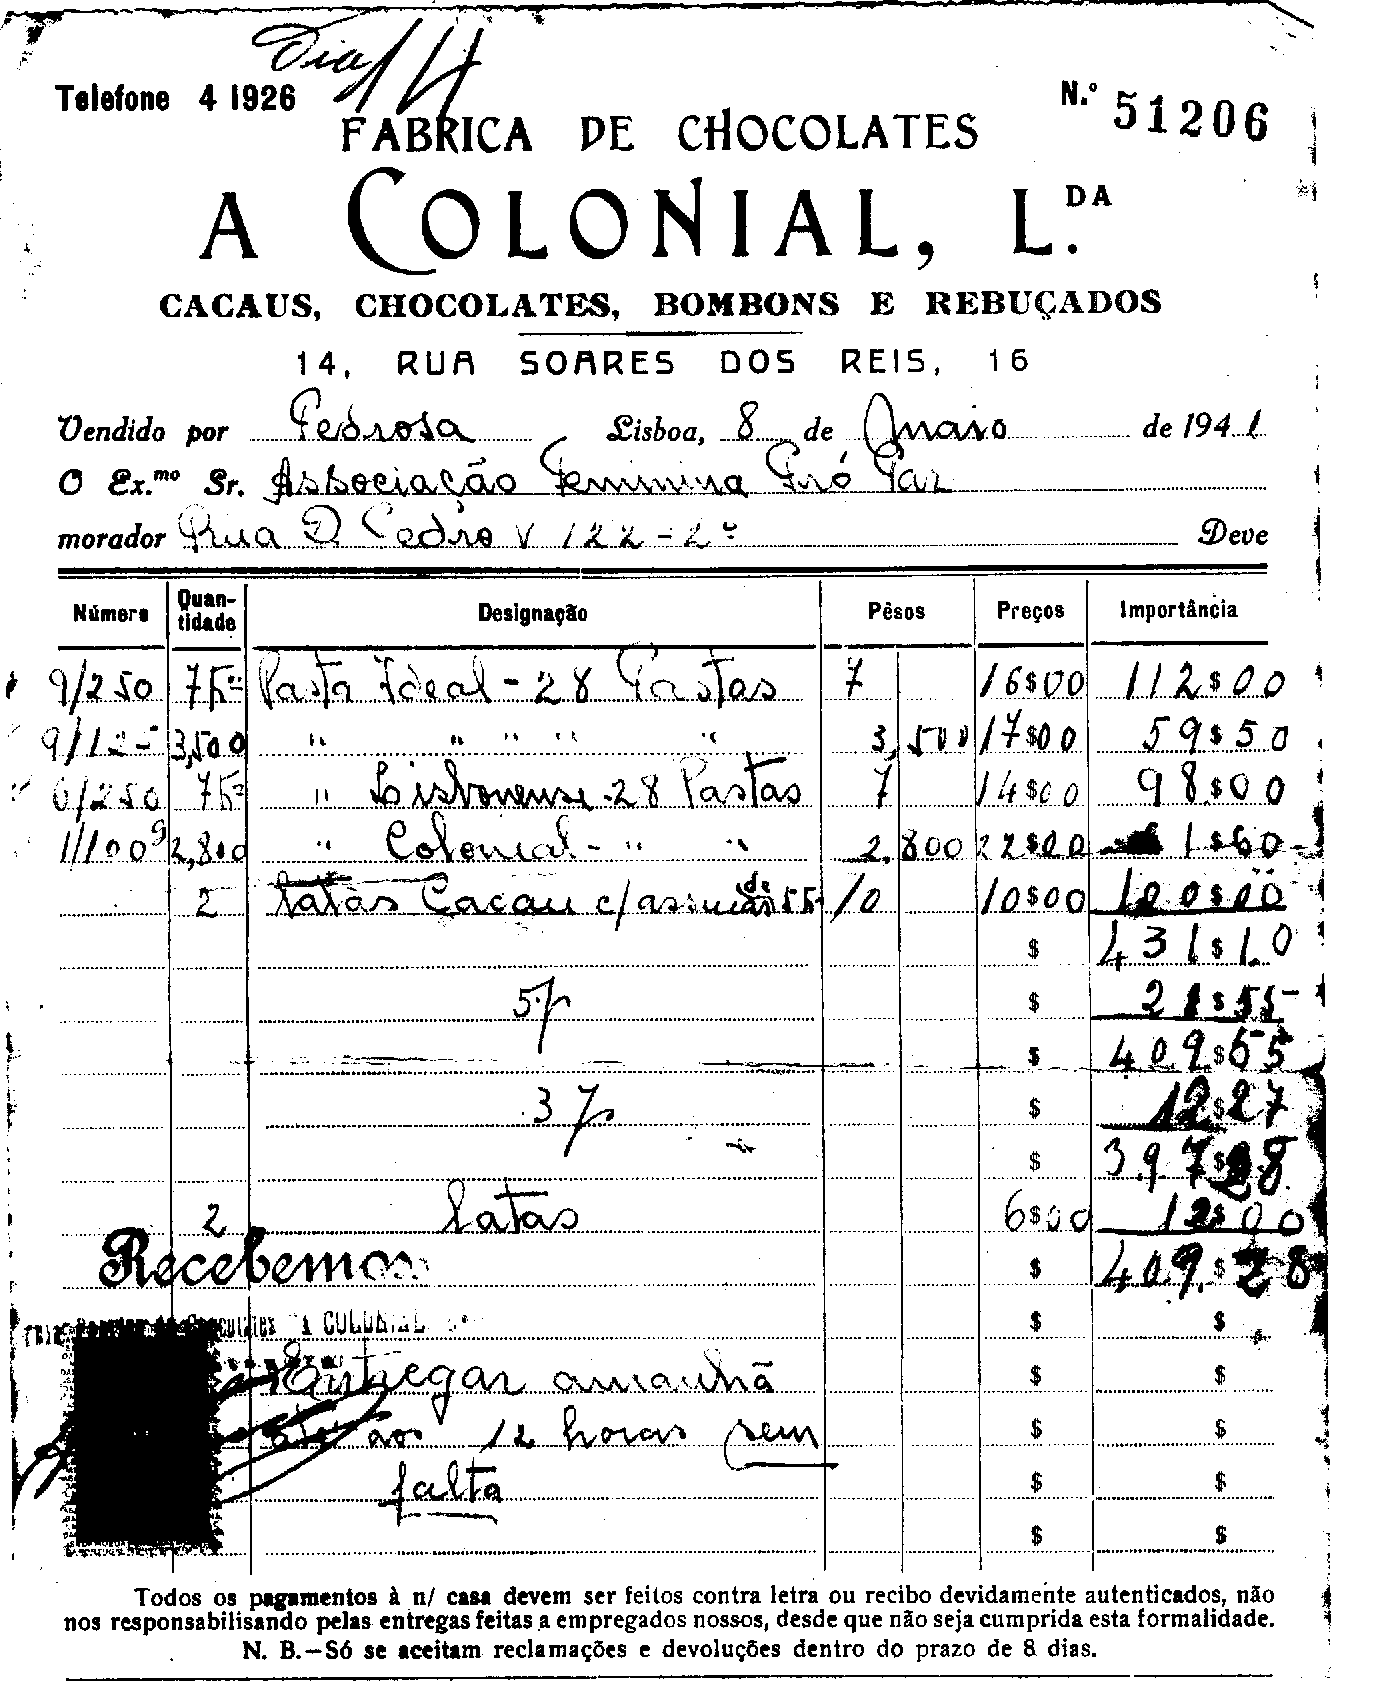 Dia
Telefone 4 1926
N.º 51206
FABRICA DE CHOCOLATES
A COLONIAL, L.DA
CACAUS, CHOCOLATES, BOMBONS E REBUÇADOS
14, RUA SOARES DOS REIS, 16
Vendido por Pedrosa Lisboa, 8 de Maio de 1941
O Ex.mo Sr. Associação Feminina Pró Paz
morador Rua D Pedro V 122-2º Deve
Número Quantidade Designação Pêsos Preços Importância
9/250 7k Pasta Ideal - 28 Pastas 7 16$00 112$00
9/125 3,500 " " " " " 3,500 17$00 59$50
6/250 7k " Lisbonense - 28 Pastas 7 14$00 98$00
1/100g 2,800 " Colonial - " " 2,800 22$00 61$60
2 latas Cacau c/ assucar de 5k 10 10$00 100$00
$ 431$10
5% $ 21$55
$ 409$55
3% $ 12$27
$ 397$28
2 latas 6$00 12$00
Recebemos $ 409$28
A COLONIAL $ $
Entregar amanhã $ $
até ás 12 horas sem $ $
falta $ $
$ $
Todos os pagamentos à n/ casa devem ser feitos contra letra ou recibo devidamente autenticados, não
nos responsabilisando pelas entregas feitas a empregados nossos, desde que não seja cumprida esta formalidade.
N. B.—Só se aceitam reclamações e devoluções dentro do prazo de 8 dias.